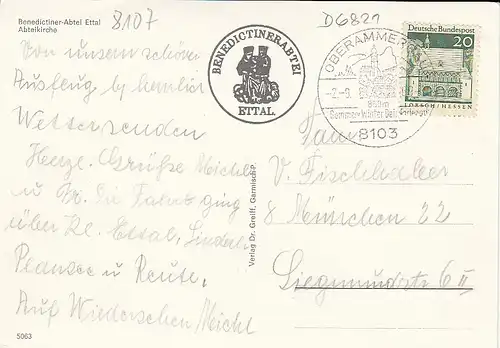 Benedictiner-Abtei Ettal
Abteikirche
8107
D6821
BENEDICTINERABTEI
ETTAL
OBERAMMERGAU
850m
8103
Deutsche Bundespost
20
LORSCH/HESSEN
Von unserem schönen
Ausflug bei herrlich
Wetter senden
Herzl. Grüße Michl
u. Die Fahrt ging
über Kl. Ettal, Linderh.
Plansee u Reute,
Auf Wiedersehen Michl
V. Fischhaber
8 München 22
Siegmundstr 6 II
Verlag Dr. Greiff, Garmisch-P.
5063